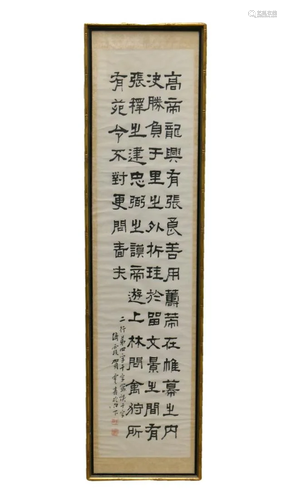 高帝龍興有張良善用籌策在帷幕之内
決勝負于里之外析珪於留文景之間有
張釋之建忠弼之謨帝遊上林問禽狩所
有苑令不對更問嗇夫
二行第四字千字